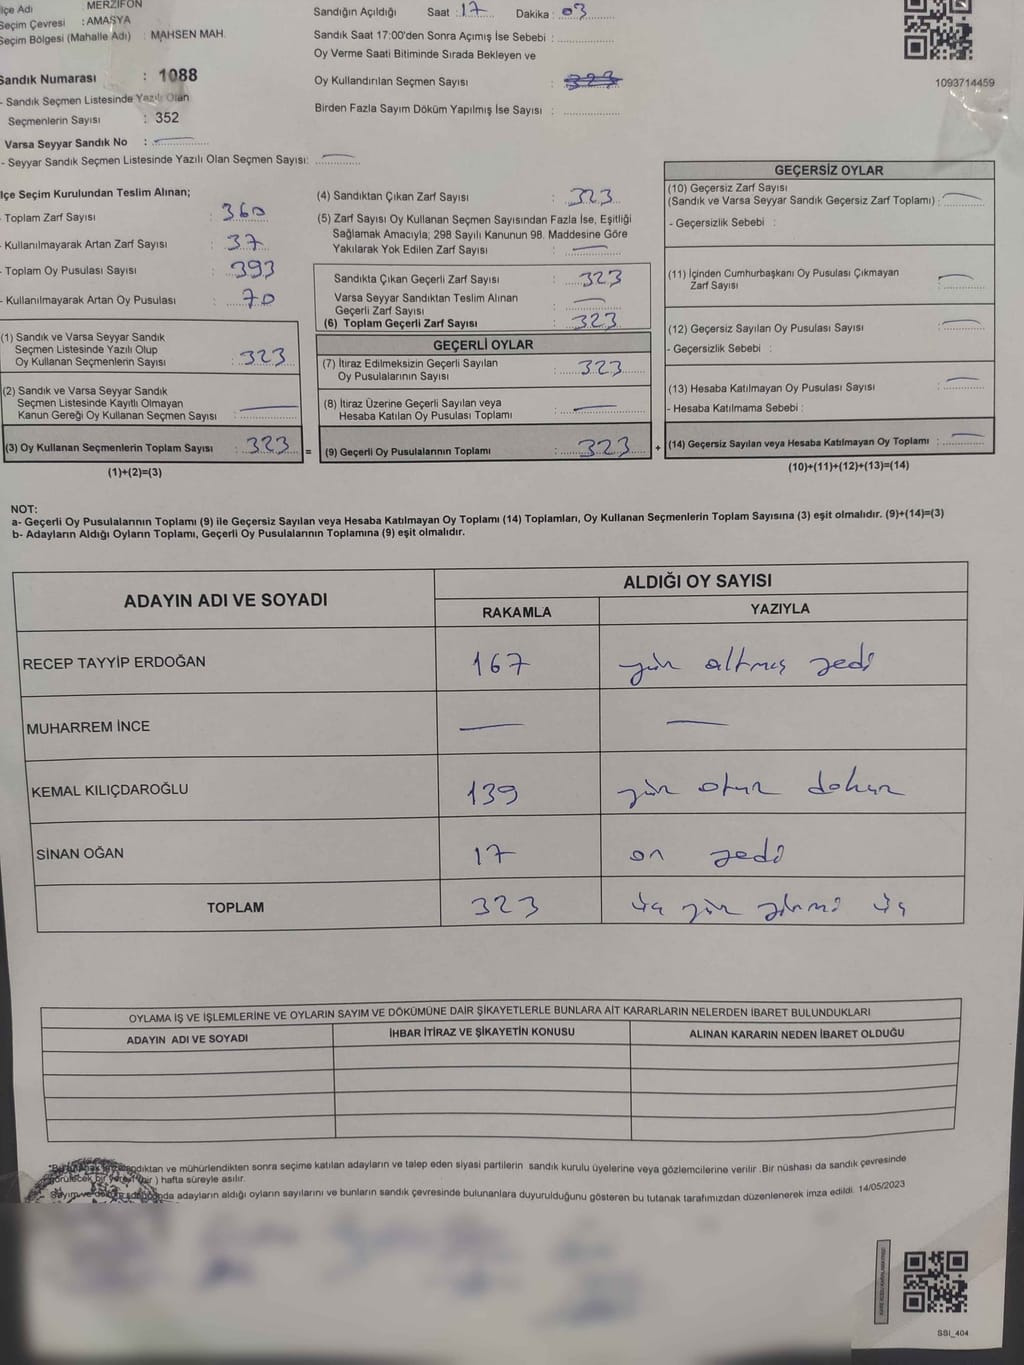 İlçe Adı : MERZİFON
Seçim Çevresi : AMASYA
Seçim Bölgesi (Mahalle Adı) : MAHSEN MAH.
Sandık Numarası : 1088
- Sandık Seçmen Listesinde Yazılı Olan
Seçmenlerin Sayısı : 352
Varsa Seyyar Sandık No : —
- Seyyar Sandık Seçmen Listesinde Yazılı Olan Seçmen Sayısı: —
Sandığın Açıldığı Saat : 17 Dakika : 03
Sandık Saat 17:00'den Sonra Açımış İse Sebebi :
Oy Verme Saati Bitiminde Sırada Bekleyen ve
Oy Kullandırılan Seçmen Sayısı :
Birden Fazla Sayım Döküm Yapılmış İse Sayısı :
1093714459
İlçe Seçim Kurulundan Teslim Alınan;
- Toplam Zarf Sayısı : 360
- Kullanılmayarak Artan Zarf Sayısı : 37
- Toplam Oy Pusulası Sayısı : 393
- Kullanılmayarak Artan Oy Pusulası : 70
(1) Sandık ve Varsa Seyyar Sandık
Seçmen Listesinde Yazılı Olup
Oy Kullanan Seçmenlerin Sayısı : 323
(2) Sandık ve Varsa Seyyar Sandık
Seçmen Listesinde Kayıtlı Olmayan
Kanun Gereği Oy Kullanan Seçmen Sayısı : —
(3) Oy Kullanan Seçmenlerin Toplam Sayısı : 323 =
(1)+(2)=(3)
(4) Sandıktan Çıkan Zarf Sayısı : 323
(5) Zarf Sayısı Oy Kullanan Seçmen Sayısından Fazla İse, Eşitliği
Sağlamak Amacıyla; 298 Sayılı Kanunun 98. Maddesine Göre
Yakılarak Yok Edilen Zarf Sayısı : —
Sandıkta Çıkan Geçerli Zarf Sayısı : 323
Varsa Seyyar Sandıktan Teslim Alınan
Geçerli Zarf Sayısı : —
(6) Toplam Geçerli Zarf Sayısı : 323
GEÇERLİ OYLAR
(7) İtiraz Edilmeksizin Geçerli Sayılan
Oy Pusulalarının Sayısı : 323
(8) İtiraz Üzerine Geçerli Sayılan veya
Hesaba Katılan Oy Pusulası Toplamı : —
(9) Geçerli Oy Pusulalarının Toplamı : 323 +
GEÇERSİZ OYLAR
(10) Geçersiz Zarf Sayısı
(Sandık ve Varsa Seyyar Sandık Geçersiz Zarf Toplamı) : —
- Geçersizlik Sebebi :
(11) İçinden Cumhurbaşkanı Oy Pusulası Çıkmayan
Zarf Sayısı : —
(12) Geçersiz Sayılan Oy Pusulası Sayısı : —
- Geçersizlik Sebebi :
(13) Hesaba Katılmayan Oy Pusulası Sayısı : —
- Hesaba Katılmama Sebebi :
(14) Geçersiz Sayılan veya Hesaba Katılmayan Oy Toplamı : —
(10)+(11)+(12)+(13)=(14)
NOT:
a- Geçerli Oy Pusulalarının Toplamı (9) ile Geçersiz Sayılan veya Hesaba Katılmayan Oy Toplamı (14) Toplamları, Oy Kullanan Seçmenlerin Toplam Sayısına (3) eşit olmalıdır. (9)+(14)=(3)
b- Adayların Aldığı Oyların Toplamı, Geçerli Oy Pusulalarının Toplamına (9) eşit olmalıdır.
ADAYIN ADI VE SOYADI
ALDIĞI OY SAYISI
RAKAMLA YAZIYLA
RECEP TAYYİP ERDOĞAN 167 yüz altmış yedi
MUHARREM İNCE — —
KEMAL KILIÇDAROĞLU 139 yüz otuz dokuz
SİNAN OĞAN 17 on yedi
TOPLAM 323 üç yüz yirmi üç
OYLAMA İŞ VE İŞLEMLERİNE VE OYLARIN SAYIM VE DÖKÜMÜNE DAİR ŞİKAYETLERLE BUNLARA AİT KARARLARIN NELERDEN İBARET BULUNDUKLARI
ADAYIN ADI VE SOYADI İHBAR İTİRAZ VE ŞİKAYETİN KONUSU ALINAN KARARIN NEDEN İBARET OLDUĞU
ve mühürlendikten sonra seçime katılan adayların ve talep eden siyasi partilerin sandık kurulu üyelerine veya gözlemcilerine verilir .Bir nüshası da sandık çevresinde
hafta süreyle asılır.
adayların aldığı oyların sayılarını ve bunların sandık çevresinde bulunanlara duyurulduğunu gösteren bu tutanak tarafımızdan düzenlenerek imza edildi. 14/05/2023
SSI_404